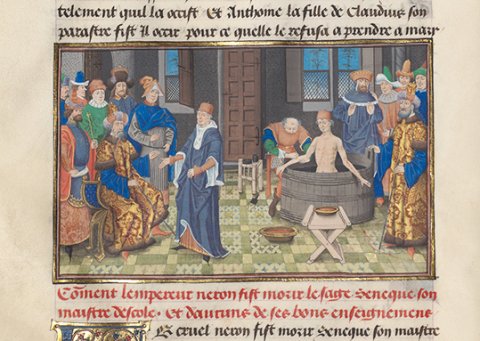 telement quil la occist Et Anthoine la fille de Claudius son
parastre fist Il occir pour ce quelle le refusa a prendre a mary
Comment lempereur neron fist morir le sage Seneque son
maistre descole. Et daucuns de ses bons enseignemens
Le cruel neron fist morir Seneque son maistre